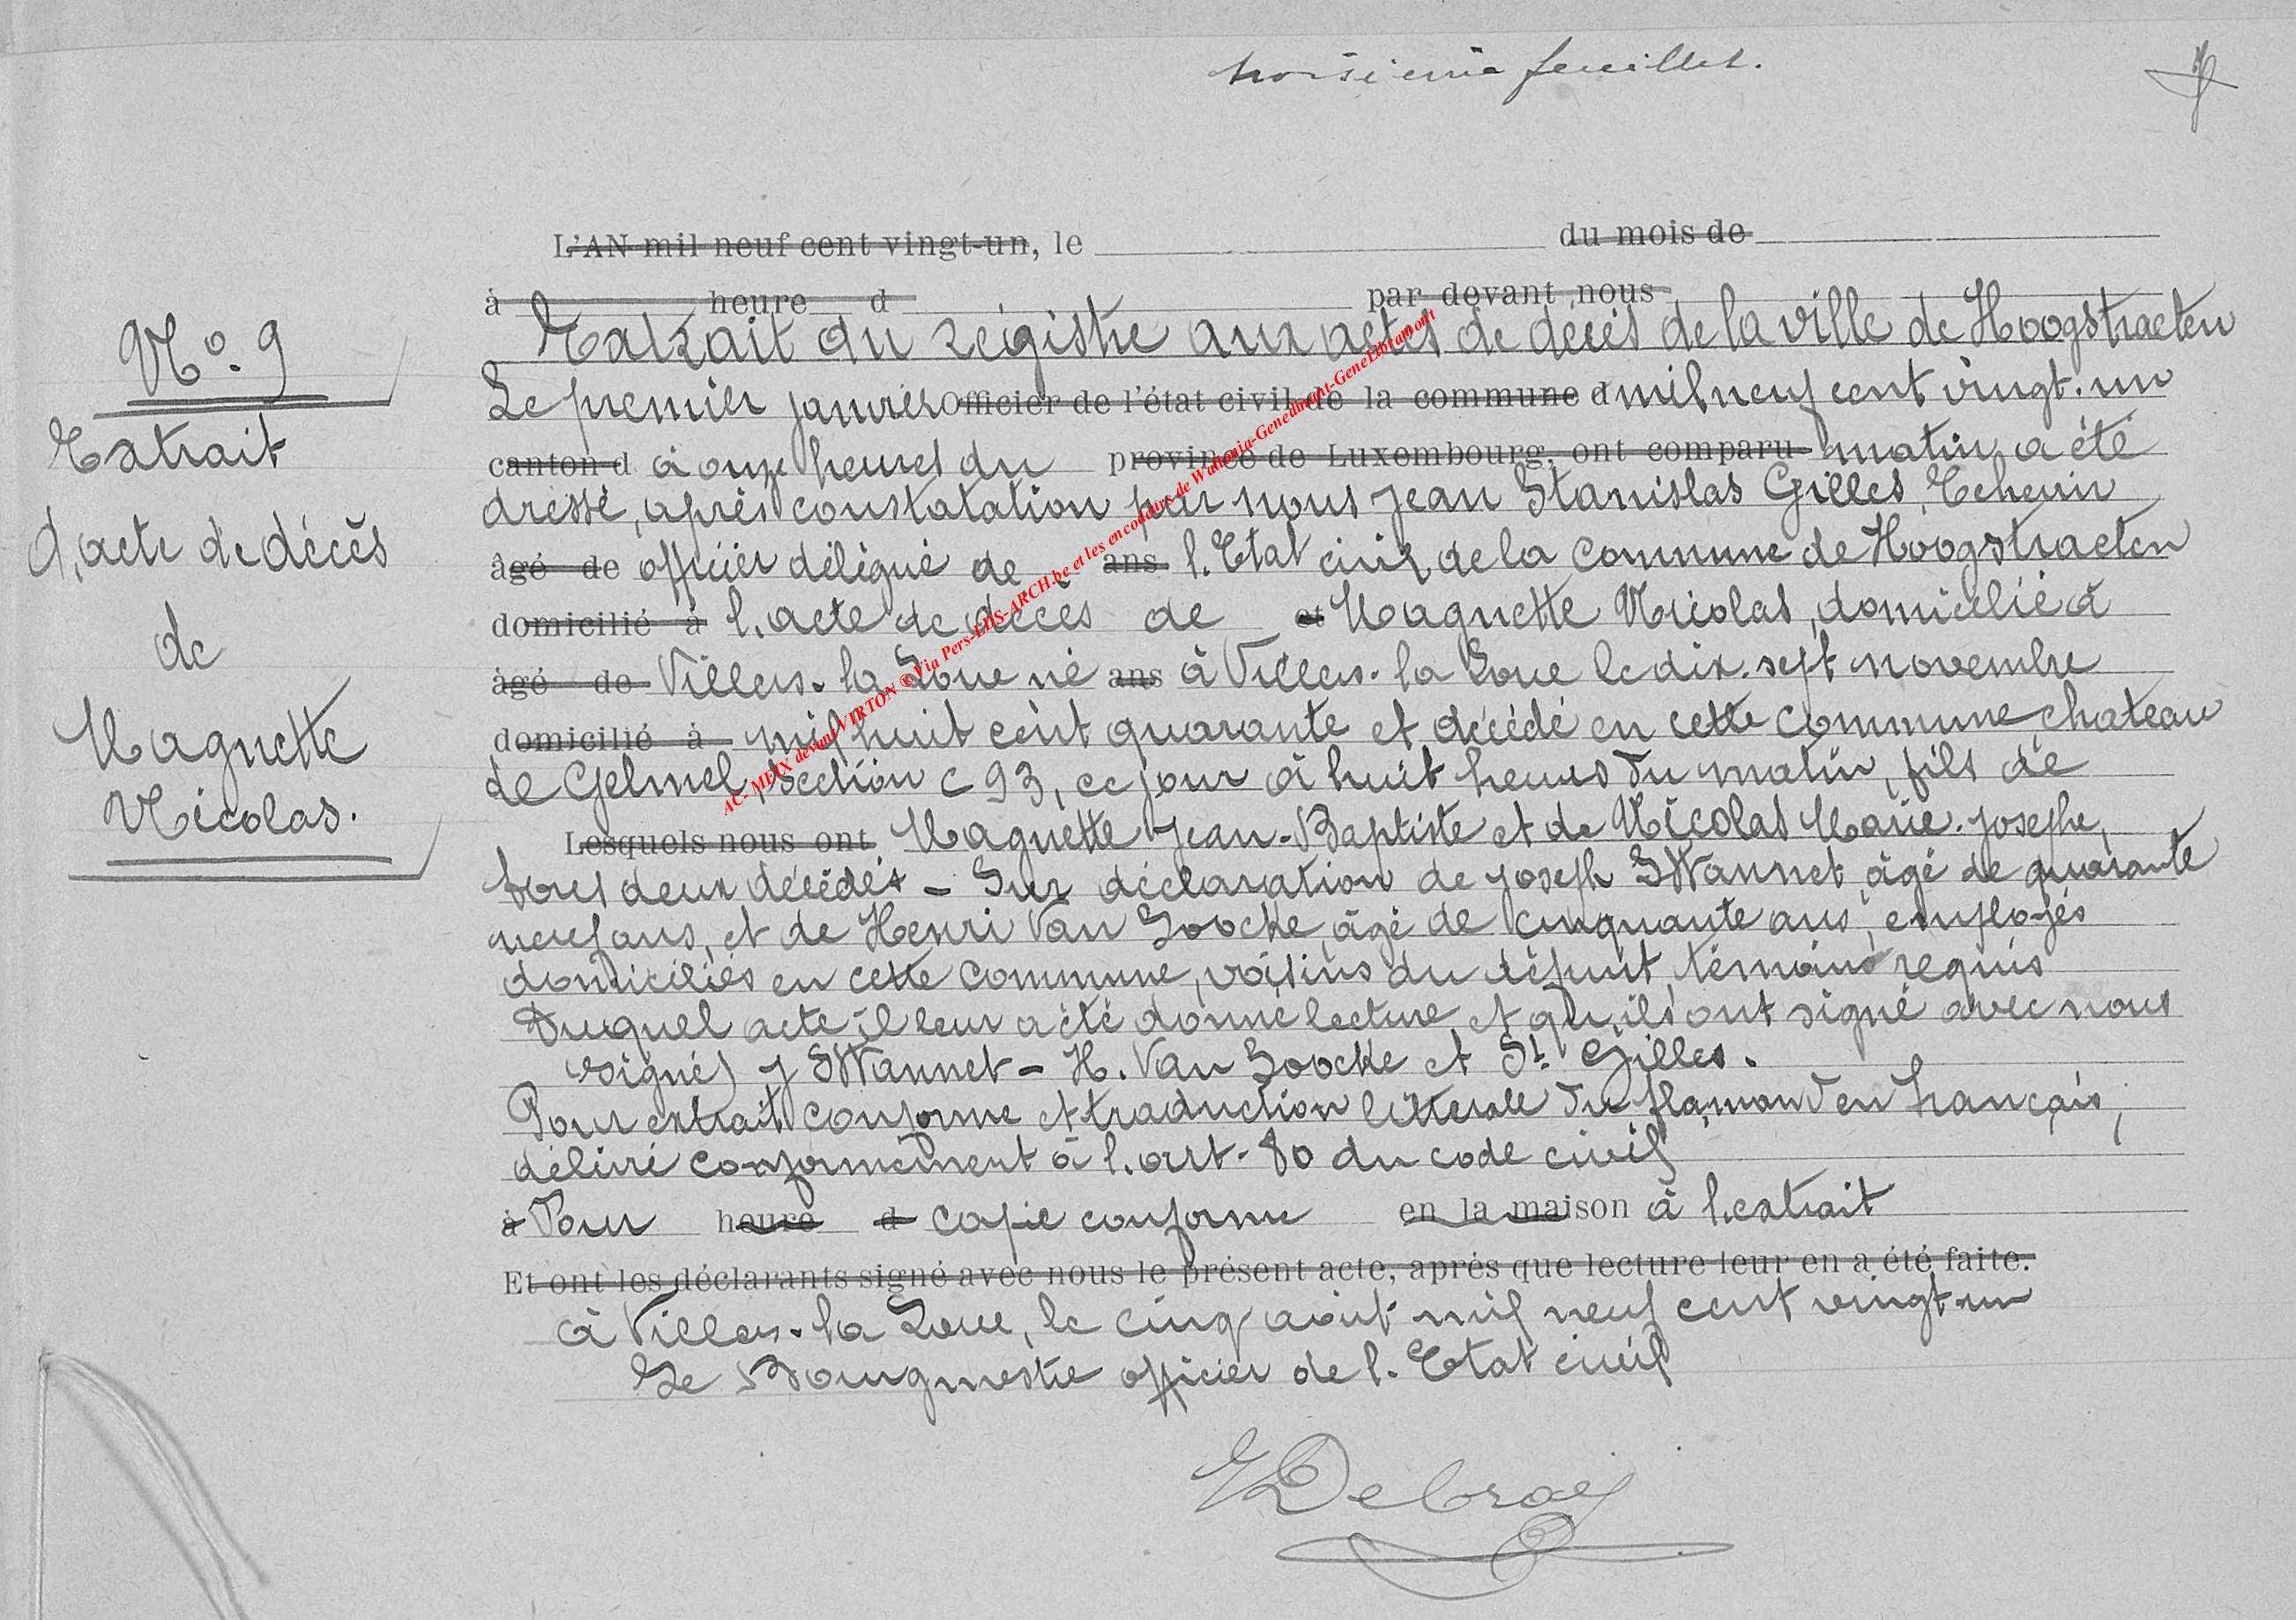 troisième feuillet.
L'AN mil neuf cent vingt-un, le du mois de
à heure d par devant nous
Extrait du régistre aux actes de décès de la ville de Hoogstraeten
Le premier janvier officier de l'état civil de la commune d mil neuf cent vingt-un
canton d à onze heures du province de Luxembourg, ont comparu matin a été
dressé, après constatation par nous Jean Stanislas Gilles, Echevin
âgé de officier délégué de ans l'Etat civil de la commune de Hoogstraeten
domicilié à l'acte de décès de et Maguette Nicolas, domicilié à
âgé de Villers-la Loue né ans à Villers-la Loue le dix-sept novembre
domicilié à mil huit cent quarante et décédé en cette commune, chateau
de Gelmel, section C 93, ce jour à huit heures du matin, fils de
Lesquels nous ont Maguette Jean-Baptiste et de Nicolas Marie-Josephe,
tous deux décédés - Sur déclaration de Joseph SWannet, âgé de quarante
neuf ans, et de Henri Van Loocke, âgé de cinquante ans, employés
domiciliés en cette commune, voisins du défunt, témoins requis
Duquel acte il leur a été donné lecture et qu'ils ont signé avec nous
(signé) J SWannet - H. Van Loocke et St. Gilles.
Pour extrait conforme et traduction littérale du flamand en français,
délivré conformément à l'art-80 du code civil
à Pour heure d copie conforme en la maison à l'extrait
Et ont les déclarants signé avec nous le présent acte, après que lecture leur en a été faite.
à Villers-la Loue, le cinq août mil neuf cent vingt-un
Le Bourgmestre officier de l'Etat civil
No. 9
Extrait
d'acte de décès
de
Maguette
Nicolas.
AC- MEIX devant VIRTON © Via Pers-LDS-ARCH.be et les encodeurs de Wallonia-Genedinant-GeneLibramont